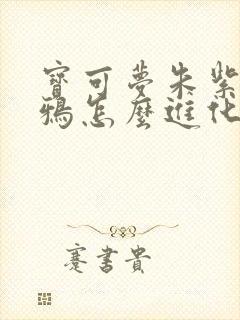 寶可夢朱紫
鴉怎麼進化
蹇書貴